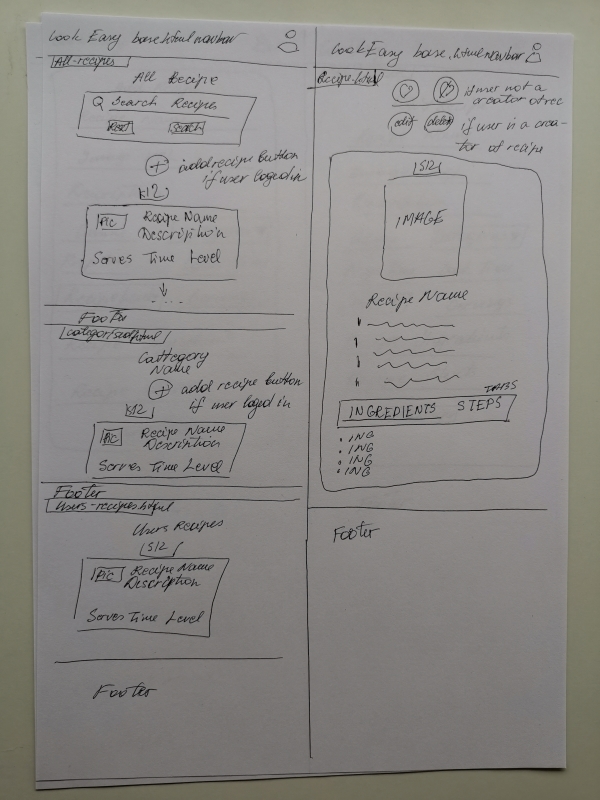 Cook Easy base.html navbar
All-recipes
All Recipe
Search Recipes
Reset Search
+ add recipe button
if user loged in
S12
Pic Recipe Name
Description
Serves Time Level
....
Footer
Cattegory
Name
+ add recipe button
if user loged in
S12
Pic Recipe Name
Description
Serves Time Level
Footer
Users-recipes.html
Users Recipes
S12
Pic Recipe Name
Description
Serves Time Level
Footer
Cook Easy base.html navbar
Recipe.html
if user not a
creator of rec
edit delete if user is a crea-
tor of recipe
S12
IMAGE
Recipe Name
TABS
INGREDIENTS STEPS
• ING
• ING
• ING
• ING
Footer